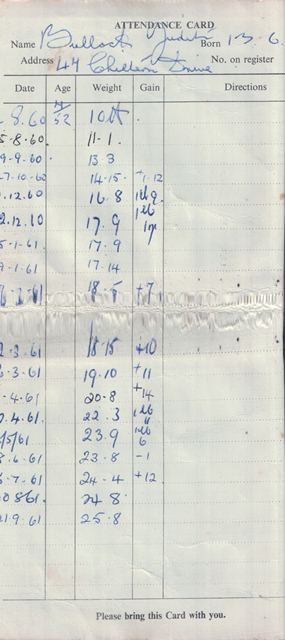 ATTENDANCE CARD
Name Bullock Judith Born 1-3-6
Address 44 Chiltern Drive No. on register
Date Age Weight Gain Directions
8.60 4/52
5-8-60. 11-1.
9-9-60. 13 3
7-10-60 14-15- +1-12
.12.60 16.8 1lb 9
2.12.10 17.9 1lb
5-1-61. 17.9
9-1-61 17-14
2-61 18-5 +7
2-3.61 18-15 +10
-3.61 19.10 +11
-4-61 20-8 +14
4.61. 22.3 1lb 11
/5/61 23.9 1lb 6
-6.61 23.8 -1
6-7.61 24-4 +12
0 861. 24 8
1.9.61 25-8
Please bring this Card with you.